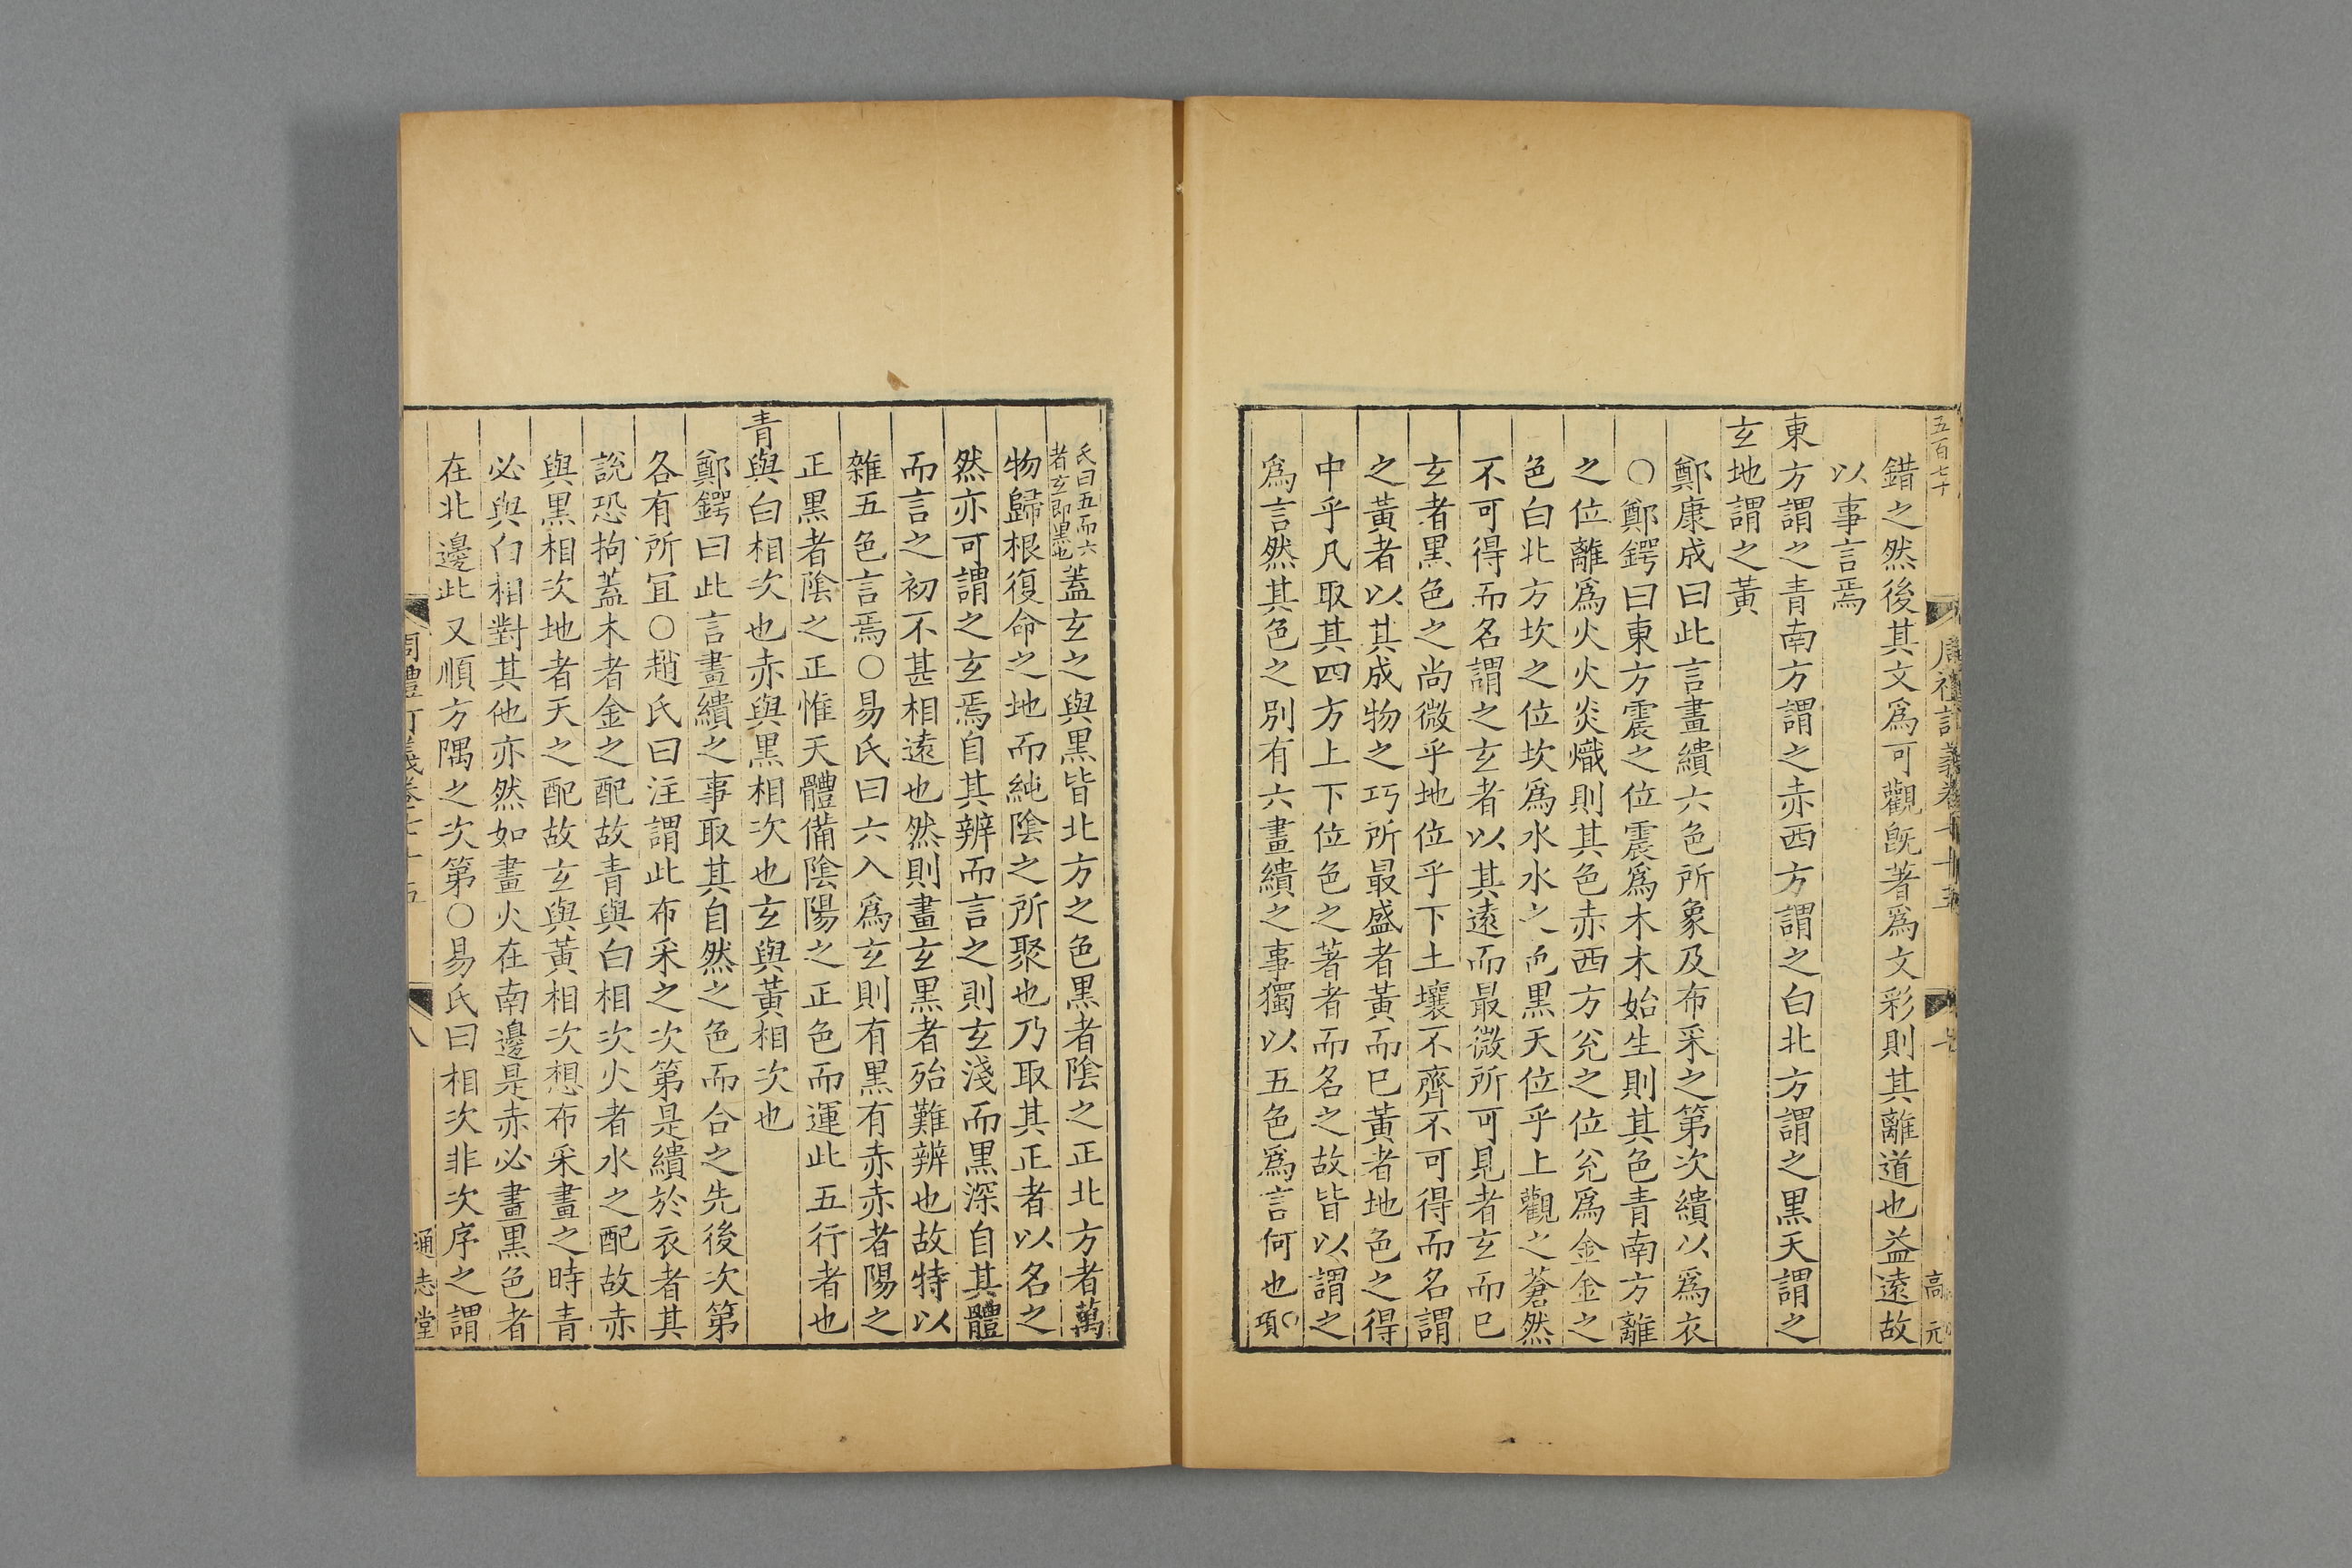 五百七十
周禮訂義卷七十五
高元
錯之然後其文爲可觀旣著爲文彩則其離道也益遠故
以事言焉
東方謂之青南方謂之赤西方謂之白北方謂之黑天謂之
玄地謂之黃
鄭康成曰此言畫繢六色所象及布采之第次繢以爲衣
○鄭鍔曰東方震之位震爲木木始生則其色青南方離
之位離爲火火炎熾則其色赤西方兊之位兊爲金金之
色白北方坎之位坎爲水水之色黑天位乎上觀之蒼然
不可得而名謂之玄者以其遠而最微所可見者玄而已
玄者黑色之尚微乎地位乎下土壤不齊不可得而名謂
之黃者以其成物之巧所最盛者黃而已黃者地色之得
中乎凡取其四方上下位色之著者而名之故皆以謂之
爲言然其色之別有六畫繢之事獨以五色爲言何也○項
氏曰五而六
者玄即黑也蓋玄之與黑皆北方之色黑者陰之正北方者萬
物歸根復命之地而純陰之所聚也乃取其正者以名之
然亦可謂之玄焉自其辨而言之則玄淺而黑深自其體
而言之初不甚相遠也然則畫玄黑者殆難辨也故特以
雜五色言焉○易氏曰六入爲玄則有黑有赤赤者陽之
正黑者陰之正惟天體備陰陽之正色而運此五行者也
青與白相次也赤與黑相次也玄與黃相次也
鄭鍔曰此言畫繢之事取其自然之色而合之先後次第
各有所冝○趙氏曰注謂此布采之次第是繢於衣者其
說恐拘蓋木者金之配故青與白相次火者水之配故赤
與黑相次地者天之配故玄與黃相次想布采畫之時青
必與白相對其他亦然如畫火在南邊是赤必畫黑色者
在北邊此又順方隅之次第○易氏曰相次非次序之謂
周禮訂義卷七十五
八
通志堂